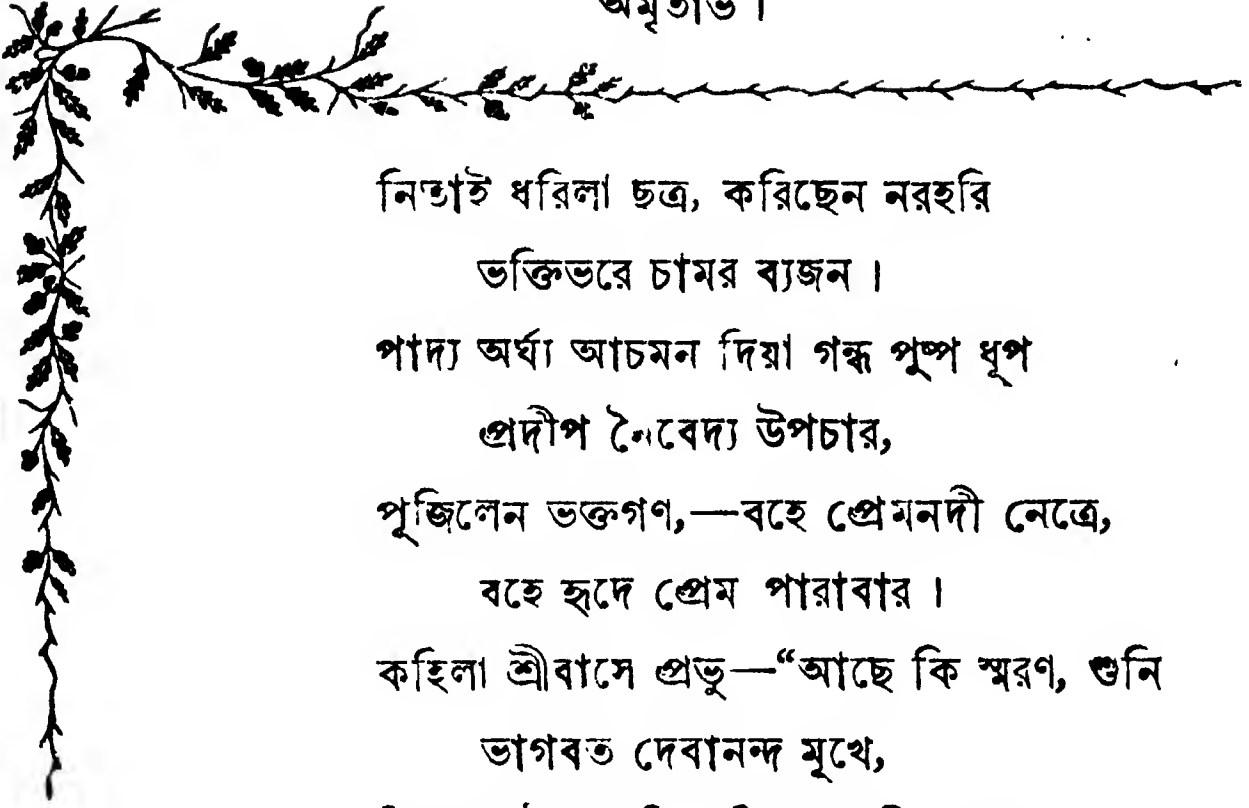 অমৃতাভ ।
নিতাই ধরিলা ছত্র, করিছেন নরহরি
ভক্তিভরে চামর ব্যজন ।
পাদ্য অর্ঘ্য আচমন দিয়া গন্ধ পুষ্প ধূপ
প্রদীপ নৈবেদ্য উপচার,
পূজিলেন ভক্তগণ,—বহে প্রেমনদী নেত্রে,
বহে হৃদে প্রেম পারাবার ।
কহিলা শ্রীবাসে প্রভু—“আছে কি স্মরণ, শুনি
ভাগবত দেবানন্দ মূখে,